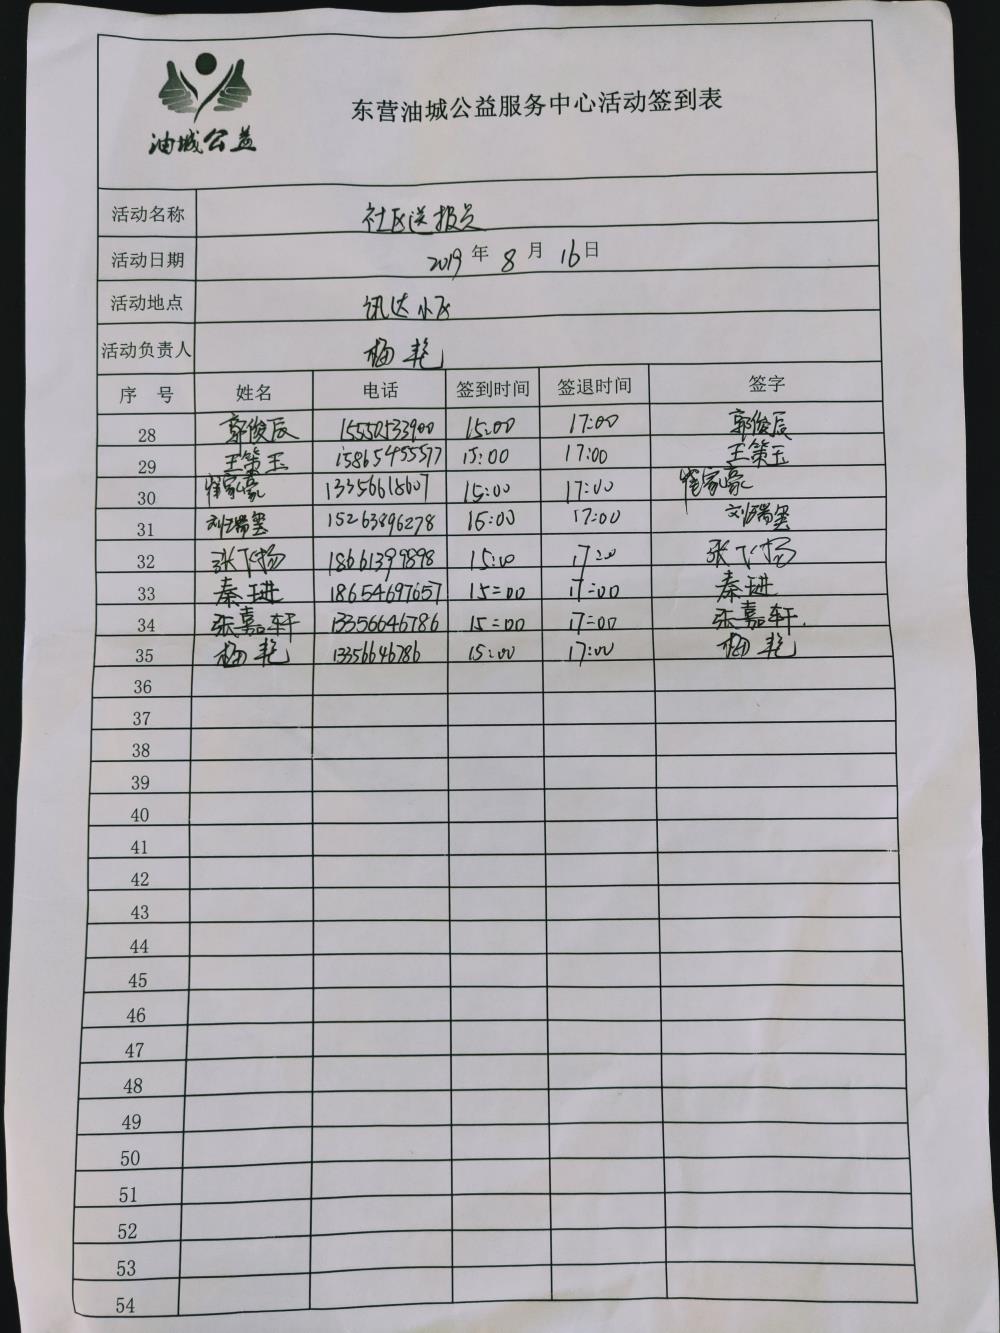 油城公益
东营油城公益服务中心活动签到表
活动名称 社区送报员
活动日期 2019年8月16日
活动地点 讯达小区
活动负责人 梅艳
序号 姓名 电话 签到时间 签退时间 签字
28 郭俊辰 15550533900 15:00 17:00 郭俊辰
29 王策玉 15865455577 15:00 17:00 王策玉
30 崔家豪 13356618607 15:00 17:00 崔家豪
31 刘瑞 15263896278 15:00 17:00 刘瑞
32 张飞扬 18661399898 15:00 17:00 张飞扬
33 秦琎 18654697657 15:00 17:00 秦琎
34 张嘉轩 13356646786 15:00 17:00 张嘉轩.
35 梅艳 13356646786 15:00 17:00 梅艳
36
37
38
39
40
41
42
43
44
45
46
47
48
49
50
51
52
53
54